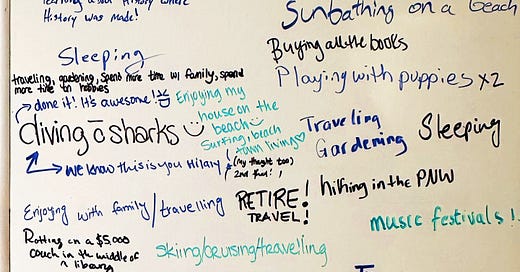 History was made!
Sunbathing on a beach
Buying all the books
Playing with puppies x2
Sleeping
traveling, gardening, spend more time w/ family, spend
more time on hobbies
done it! It's awesome!
Enjoying my
house on the
beach
Surfing, beach
town living
diving c̄ sharks
we know this is you Hilary!
(my thought too)
2nd that!
Traveling
Gardening
Sleeping
Enjoying with family/travelling
RETIRE!
TRAVEL!
hiking in the PNW
music festivals!
Rotting on a $5,000
couch in the middle of
a library
skiing/cruising/travelling